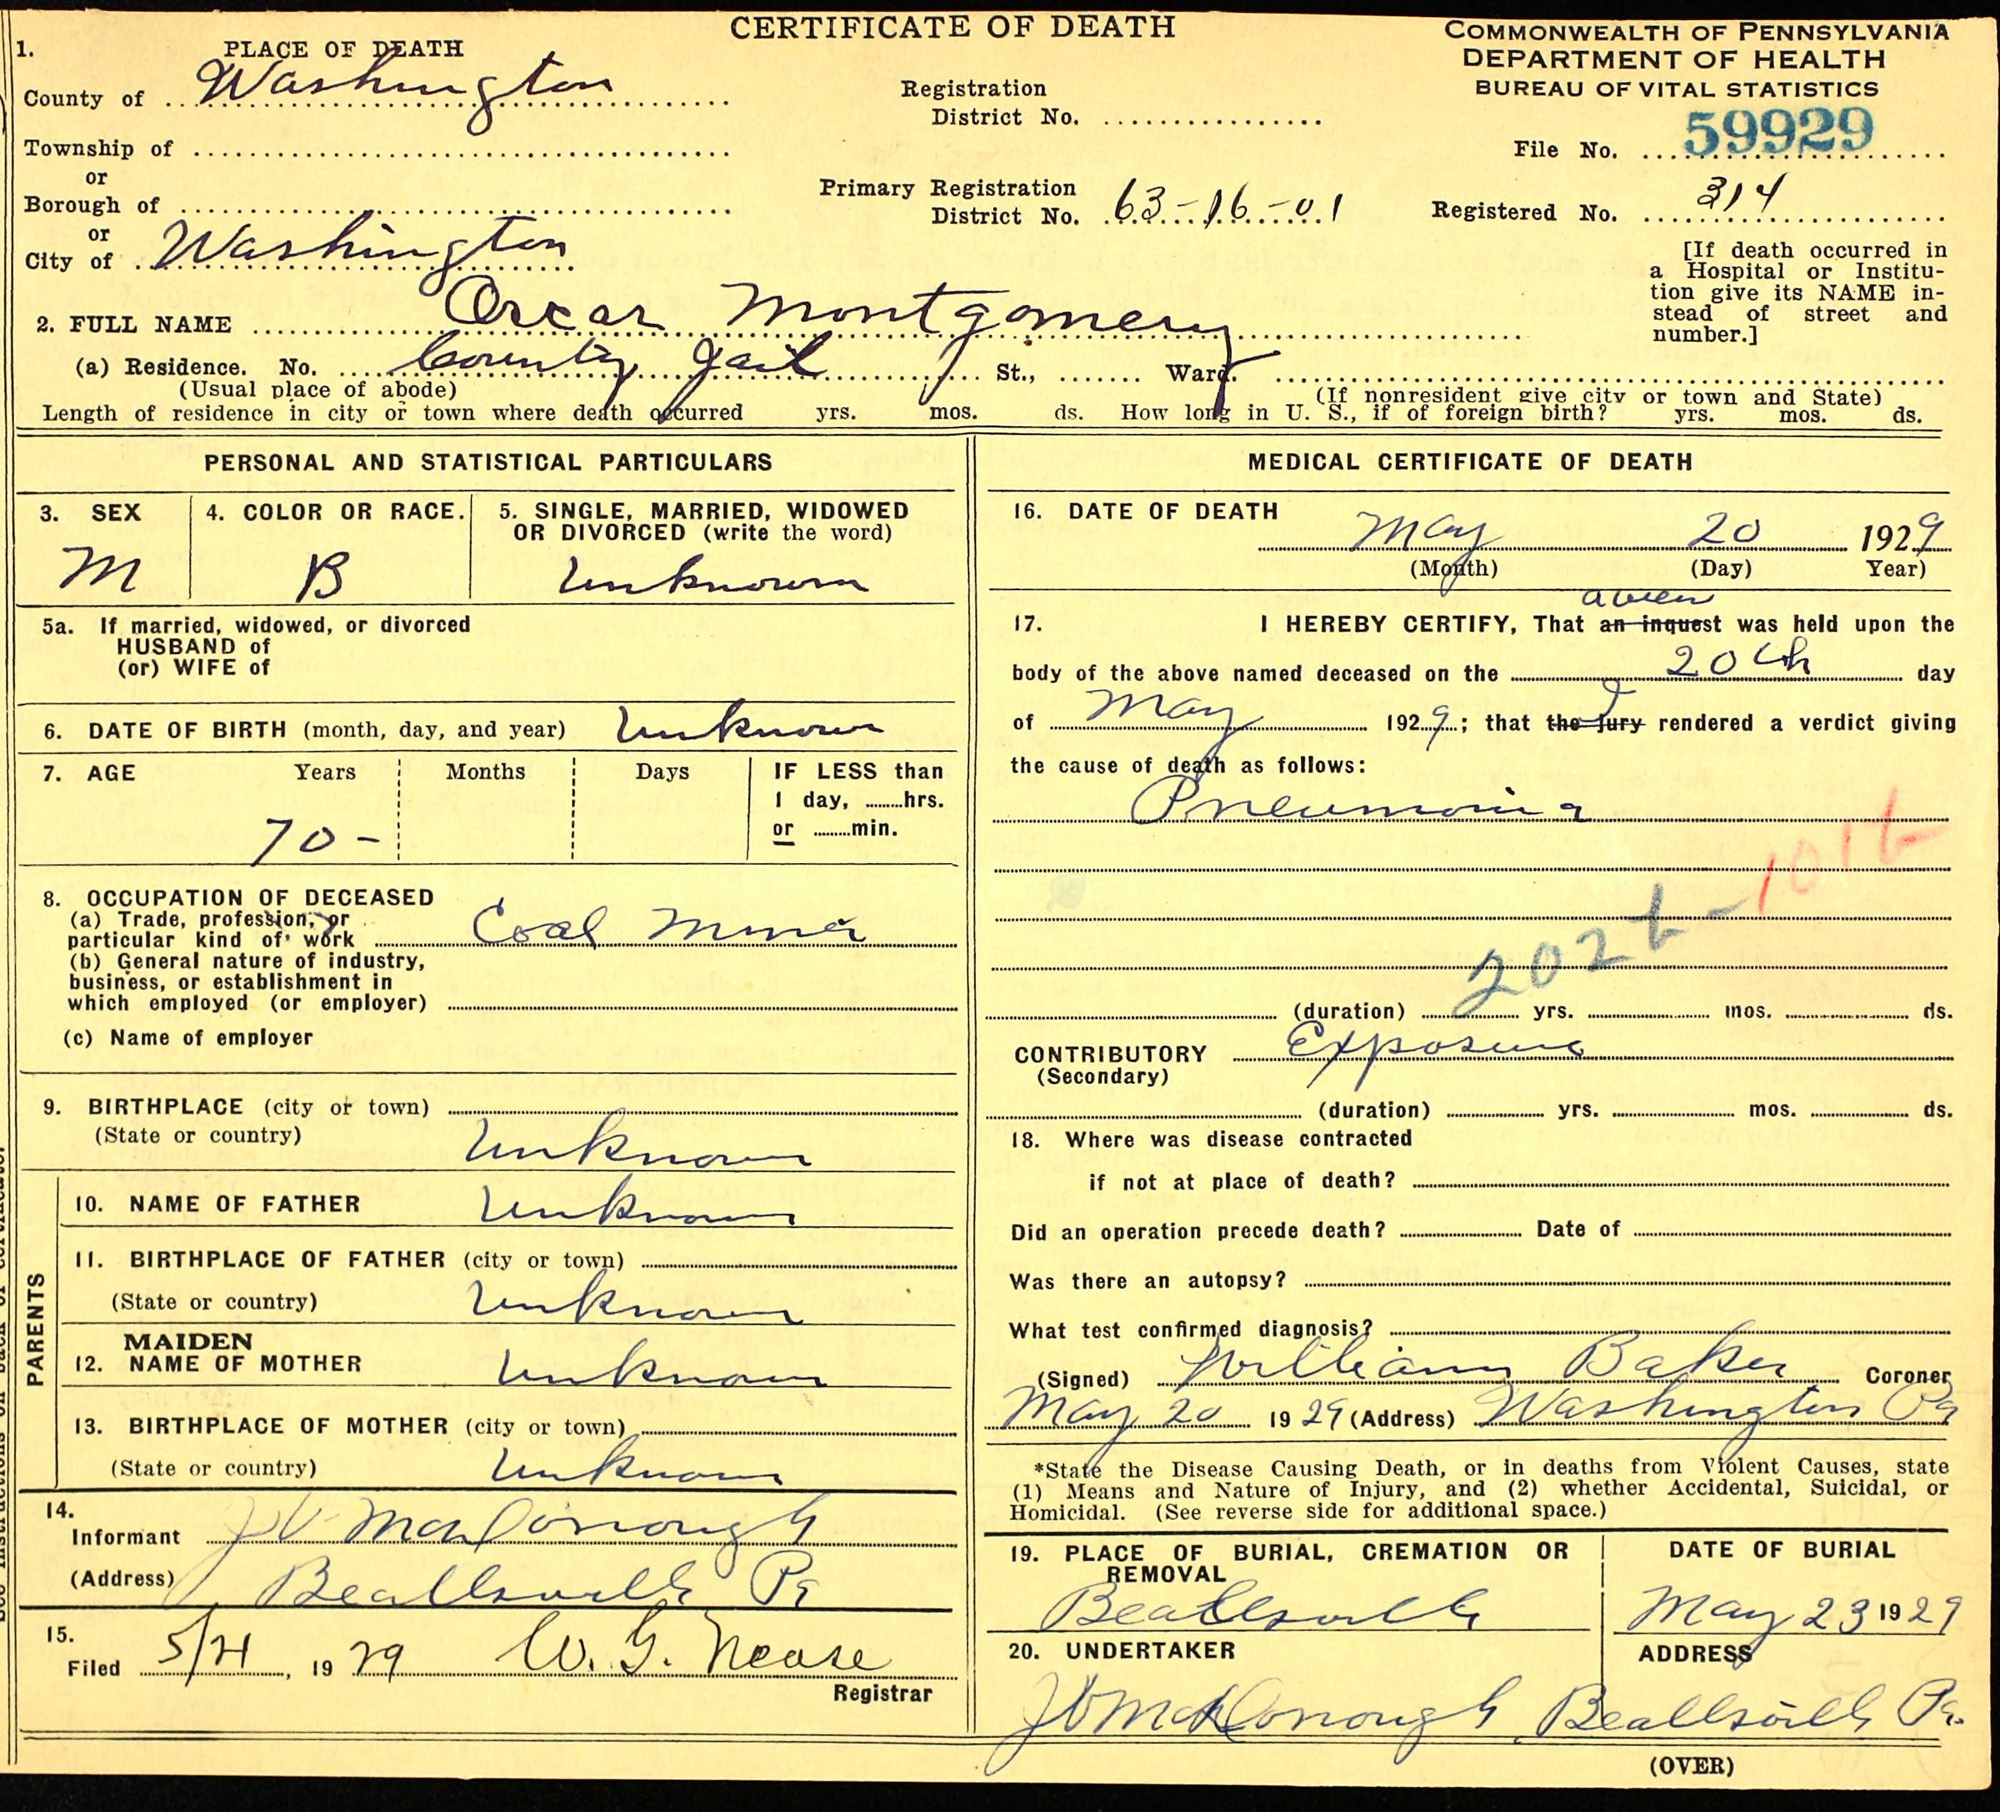 CERTIFICATE OF DEATH
COMMONWEALTH OF PENNSYLVANIA
DEPARTMENT OF HEALTH
BUREAU OF VITAL STATISTICS
1. PLACE OF DEATH
County of Washington
Township of
or
Borough of
or
City of Washington
Registration
District No.
Primary Registration
District No. 63-16-01
File No. 59929
Registered No. 314
[If death occurred in
a Hospital or Institu-
tion give its NAME in-
stead of street and
number.]
2. FULL NAME Oscar Montgomery
(a) Residence. No. County Jail St., Ward.
(Usual place of abode) (If nonresident give city or town and State)
Length of residence in city or town where death occurred yrs. mos. ds. How long in U. S., if of foreign birth? yrs. mos. ds.
PERSONAL AND STATISTICAL PARTICULARS
3. SEX
M
4. COLOR OR RACE.
B
5. SINGLE, MARRIED, WIDOWED
OR DIVORCED (write the word)
Unknown
5a. If married, widowed, or divorced
HUSBAND of
(or) WIFE of
6. DATE OF BIRTH (month, day, and year) Unknown
7. AGE Years Months Days IF LESS than
1 day, hrs.
or min.
70 -
8. OCCUPATION OF DECEASED
(a) Trade, profession, or
particular kind of work Coal Miner
(b) General nature of industry,
business, or establishment in
which employed (or employer)
(c) Name of employer
9. BIRTHPLACE (city or town)
(State or country) Unknown
PARENTS
10. NAME OF FATHER Unknown
11. BIRTHPLACE OF FATHER (city or town)
(State or country) Unknown
MAIDEN
12. NAME OF MOTHER Unknown
13. BIRTHPLACE OF MOTHER (city or town)
(State or country) Unknown
14.
Informant J V MacDonough
(Address) Beallsville Pa
15.
Filed 5/21, 1929 W. G. Nease
Registrar
MEDICAL CERTIFICATE OF DEATH
16. DATE OF DEATH
May 20 1929
(Month) (Day) Year)
a view
17. I HEREBY CERTIFY, That an inquest was held upon the
body of the above named deceased on the 20th day
I
of May 1929; that the jury rendered a verdict giving
the cause of death as follows:
Pneumonia
(duration) yrs. mos. ds.
CONTRIBUTORY Exposure
(Secondary)
(duration) yrs. mos. ds.
18. Where was disease contracted
if not at place of death?
Did an operation precede death? Date of
Was there an autopsy?
What test confirmed diagnosis?
(Signed) William Baker Coroner
May 20 1929 (Address) Washington Pa
*State the Disease Causing Death, or in deaths from Violent Causes, state
(1) Means and Nature of Injury, and (2) whether Accidental, Suicidal, or
Homicidal. (See reverse side for additional space.)
19. PLACE OF BURIAL, CREMATION OR
REMOVAL
Beallsville
DATE OF BURIAL
May 23 1929
20. UNDERTAKER
J V MacDonough
ADDRESS
Beallsville Pa.
(OVER)